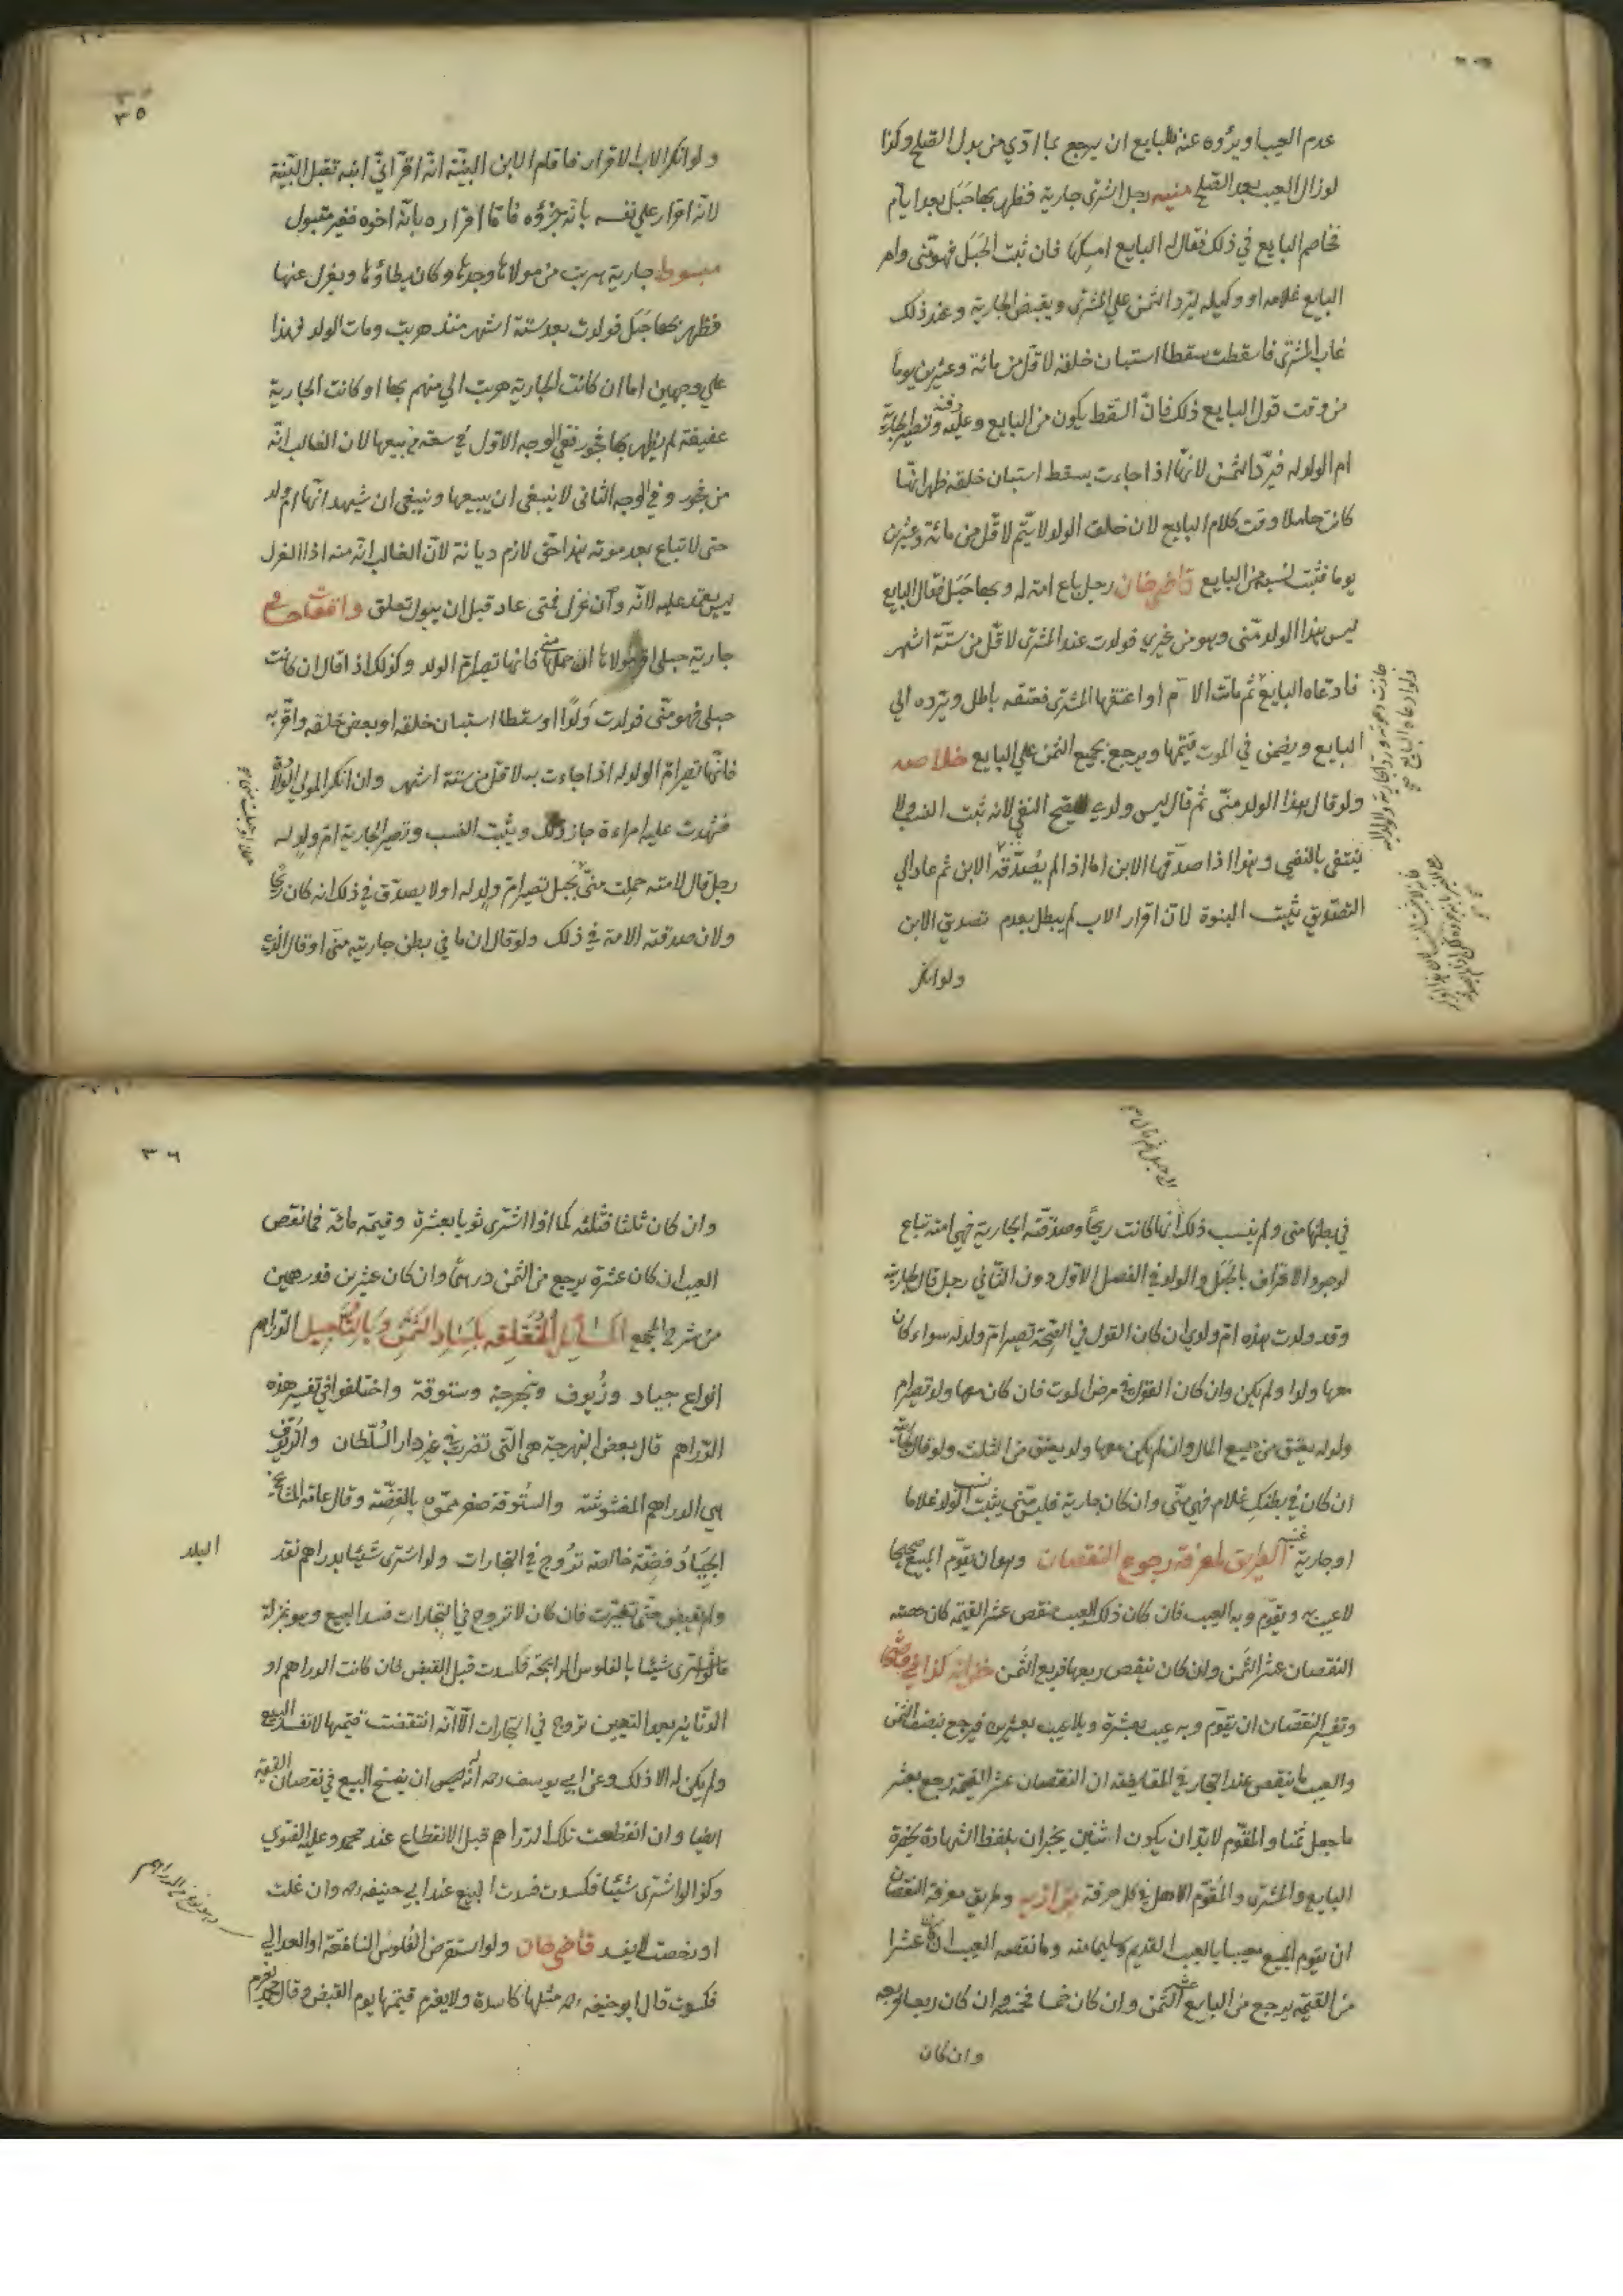 عدم العيب او برؤه عنه للبايع ان يرجع بما ادّي من بدل الصلح وكذا
لو زال العيب بعد الصلح منيه رجل اشترى جارية فظهر بها حَبَل بعد ايام
فخاصم البايع في ذلك فقال له البايع امسكها فان ثبت الحَبَل فهو منّى وامر
البايع غلامه او وكيله ليردّ الثمن علي المشترى ويقبض الجارية وعند ذلك
غاب المشترى فاسقطت سقطا استبان خلقه لاقل من مائة وعشرين يوماً
من وقت قول البايع ذلك فانّ السّقط يكون من البايع وعليه دفنه وتصير الجارية
ام الولد له فيردّ الثمن لانّها اذا جاءت بسقط استبان خلقه ظهر انّها
كانت حاملا وقت كلام البايع لان خلق الولد لا يتمّ لاقل من مائة وعشرين
يوما فثبت نسبه من البايع قاضى خان رجل باع امته له وبها حَبَل فقال البايع
ليس هذا الولد منّى وهو من غيري فولدت عند المشترى لاقلّ من ستّة اشهر
فادعاه البايع ثم ماتت الامّ او اعتقها المشترى فعتقه باطل ويرده الي
البايع ويضمن في الموت قيمتها ويرجع بجميع الثمن علي البايع خلاصه
ولو قال هذا الولد منّى ثم قال ليس ولدي لا يصح النفى لانه ثبت النسب ولا
ينتفى بالنفى وهذا اذا صدّقها الابن اما اذا لم يُصدّقه الابن ثم عاد الي
التصديق يثبت البنوة لانّ اقرار الاب لم يبطل بعدم تصديق الابن
ولو انكر
٣٥
ولو انكر الاب الاقرار فاقام الابن البيّنة انّه اقرّ انّي ابنه تقبل البيّنة
لانّه اقرار علي نفسه بانّه جزؤه فامّا اقراره بانّه اخوه فغير مقبول
مبسوط جارية هربت من مولاها وجدها وكان يطاؤها ويعزل عنها
فظهر بها حَبَل فولدت بعد ستة اشهر منذ هربت ومات الولد فهذا
علي وجهين اما ان كانت الجارية هربت الي متهم بها او كانت الجارية
عفيفة لم يظهر بها فجور ففي الوجه الاول في سعة من بيعها لان الغالب انّه
من فجور وفي الوجه الثانى لا ينبغى ان يبيعها وينبغى ان يشهد انّها ام ولد
حتى لا تباع بعد موته هذا حق لازم ديانة لانّ الغالب انّه منه اذا العزل
ليس يعتمد عليه لانّه وان عزل فمتى عاد قبل ان يبول تعلق واقعات
جارية حبلى اقر مولاها ان حملها منى فانها تصير امّ الولد وكذلك اذا قال ان كانت
حبلى فهو منّى فولدت وَلدًا او سقطا استبان خلقه او بعض خلقه واقرّ به
فانّها تصير امّ الولد له اذا جاءت به لاقل من ستة اشهر وان انكر المولي الولادة
فشهدت عليه امراءة جاز ذلك ويثبت النسب وتصير الجارية امّ ولد له
رجل قال لامته حملت منىّ بحبل تصير امّ ولد له او لا يصدّق في ذلك انه كان ريحًا
ولان صدقته الامة في ذلك ولو قال ان ما في بطن جاريته منّى او قال الذي
في بطنها منى ولم ينسب ذلك انها كانت ريحًا وصدّقته الجارية فهي امته تباع
لوجود الاعتراف بالحَبَل والولد في الفصل الاول دون الثانى رجل قال لجاريته
وقد ولدت هذه امّ ولدى ان كان القول في الصحّة تصير امّ ولد له سواء كان
معها ولد او لم يكن وان كان القول في مرض الموت فان كان معها ولد تصير امّ
ولد له يعتق من جميع المال وان لم يكن معها ولد يعتق من الثلث ولو قال
ان كان في بطنكِ غلام فهو منّى وان كان جارية فليس منّى يثبت نسب الولد غلاما
او جارية غنيه الطريق لمعرفة رجوع النقصان وهو ان يقوّم المبيع صحيحا
لا عيب به ويقوّم وبه العيب فان كان ذلك العيب ينقص عشر القيمة كان حصة
النقصان عشر الثّمن وان كان ينقص ربعها فربع الثمن خزانه كذا في
وتفسير النقصان ان يقوّم وبه عيب بعشرة وبلا عيب بعشرين فيرجع بنصف الثمن
والعيب ما ينقص عند التجار في المقايضة ان النقصان عشر القيمة رجع بعشر
ما جعل ثمنا والمقوّم لا بدّ ان يكون اثنين يخبران بلفظ الشهادة بحضرة
البايع والمشترى والمُقوّم الاهل في كل حرفة بزازيه وطريق معرفة النقصان
ان يقوم المبيع معيبا بالعيب القديم وسليما منه وما نقصه العيب ان كان عشرا
من القيمة يرجع من البايع عشر الثّمن وان كان خمسا فخمسه وان كان ربعا فربعه
وان كان
٣٦
وان كان ثلثا فثلثه كما اذا اشترى ثوبا بعشرة وقيمته مائة فما نقص
العيب ان كان عشرة يرجع من الثمن درهمًا وان كان عشرين فدرهمين
من شرح المجمع المسائل المُتعلّقه بكساد الثمن وبالتأجيل الدّراهم
انواع جياد وزُيوف ونبهرجة وستوقة واختلفوا في تفسير هذه
الدّراهم قال بعض النبهرجة هى الّتى تضرب في غير دار السُّلطان والزّيوف
هي الدراهم المغشوشة والستُوقة صفر مموّه بالفضّة وقال عامة المشايخ
الجِيادُ فضّة خالصة تروُج في التجارات ولو اشترى شيئا بدراهم نقد البلد
ولم يقبض حتّى تغيّرت فان كان لا تروج في التجارات فسد البيع وهو بمنزلة
ما لو اشترى شيئا بالفلوس الرابحة فكسدت قبل القبض فان كانت الدراهم او
الدّنانير بعد التعيين تروج في التجارات الّا انّه انتقضت قيمتها لا تفسد البيع
ولم يكن له الا ذلك وعن ابي يوسف رحه انّه ان يفسخ البيع في نقصان القيمة
ايضا وان انقطعت تلك الدّراهم قبل الانقطاع عند محمد وعليه الفتوي
وكذا لو اشترى شيئا فكسدت فسدت البيع عند ابي حنيفه رحه وان غلت
او رخصت لا يفسد قاضى خان ولو استقرض الفُلوس النافقة او العدالي
فكسدت قال ابو حنيفه رحه مثلها كاسدة ولا يغرم قيمتها يوم القبض وقال محمد يغرم